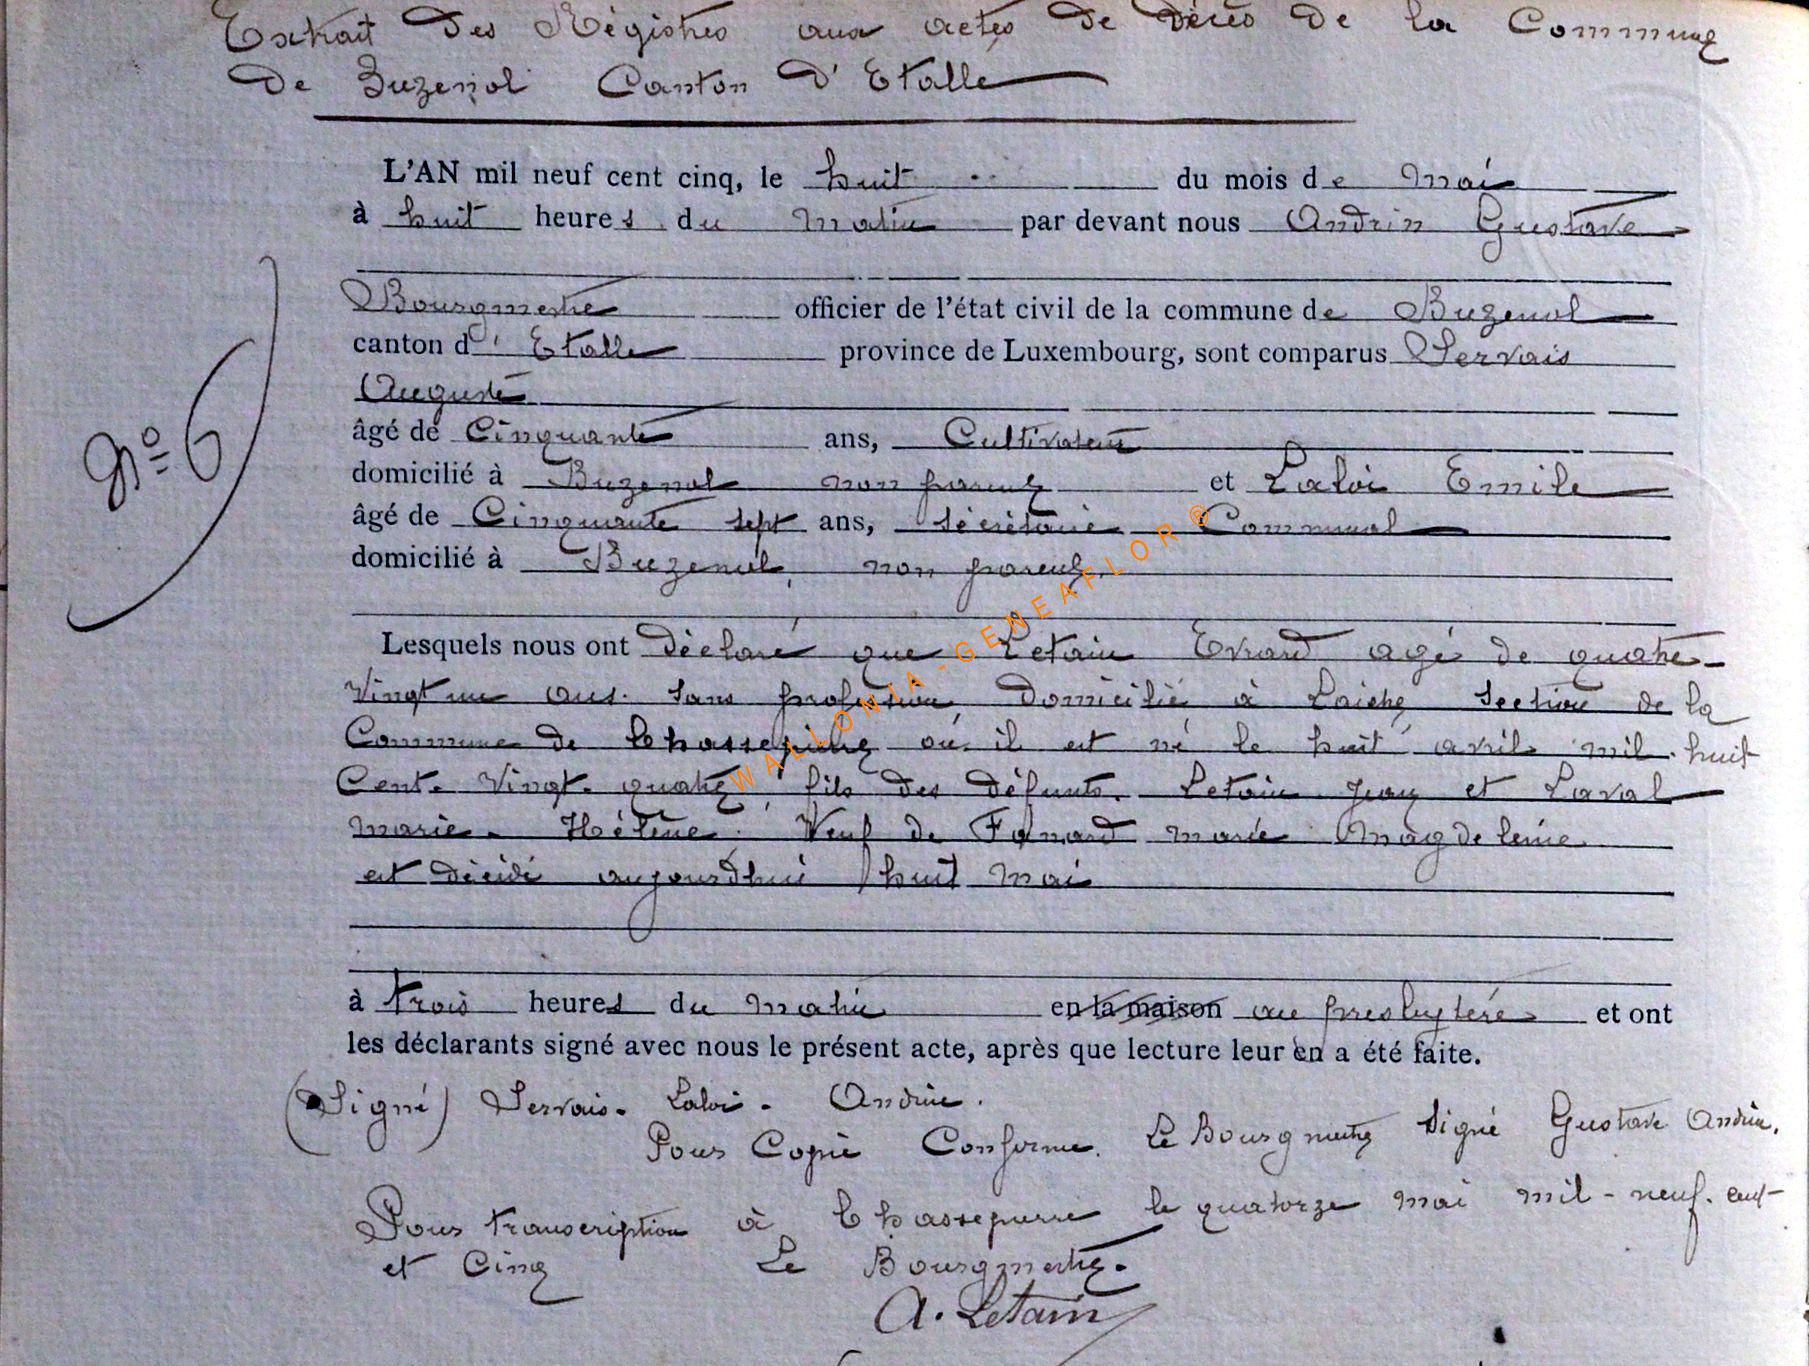 Extrait des Régistres aux actes de décès de la Commune
de Buzenol Canton d'Etalle
L'AN mil neuf cent cinq, le huit du mois de Mai
à huit heures du Matin par devant nous Andrin Gustave
Bourgmestre officier de l'état civil de la commune de Buzenol
canton d'Etalle province de Luxembourg, sont comparus Servais
Auguste
âgé de Cinquante ans, Cultivateur
domicilié à Buzenol non parent et Laloi Emile
N° 6
âgé de Cinquante sept ans, sécrétaire Communal
domicilié à Buzenol, non parent.
Lesquels nous ont déclaré que Letain Evrard agé de quatre-
Vingt un ans. sans profession domicilié à Laiche section de la
Commune de Chassepierre où il est né le huit avril mil-huit
Cent-Vingt-quatre, fils des défunts. Letain Jean et Laval
Marie-Hélène. Veuf de Fonard marie Magdeleine
est décédé aujourd'hui huit Mai
à trois heures du matin en la maison au presbytère et ont
les déclarants signé avec nous le présent acte, après que lecture leur en a été faite.
(Signé) Servais. Laloi. Andrin.
Pour Copie Conforme. Le Bourgmestre signé Gustave Andrin.
Pour transcription à Chassepierre le quatorze mai mil-neuf-cent
et Cinq Le Bourgmestre.
A. Letain
WALLONIA-GENEAFLOR ®